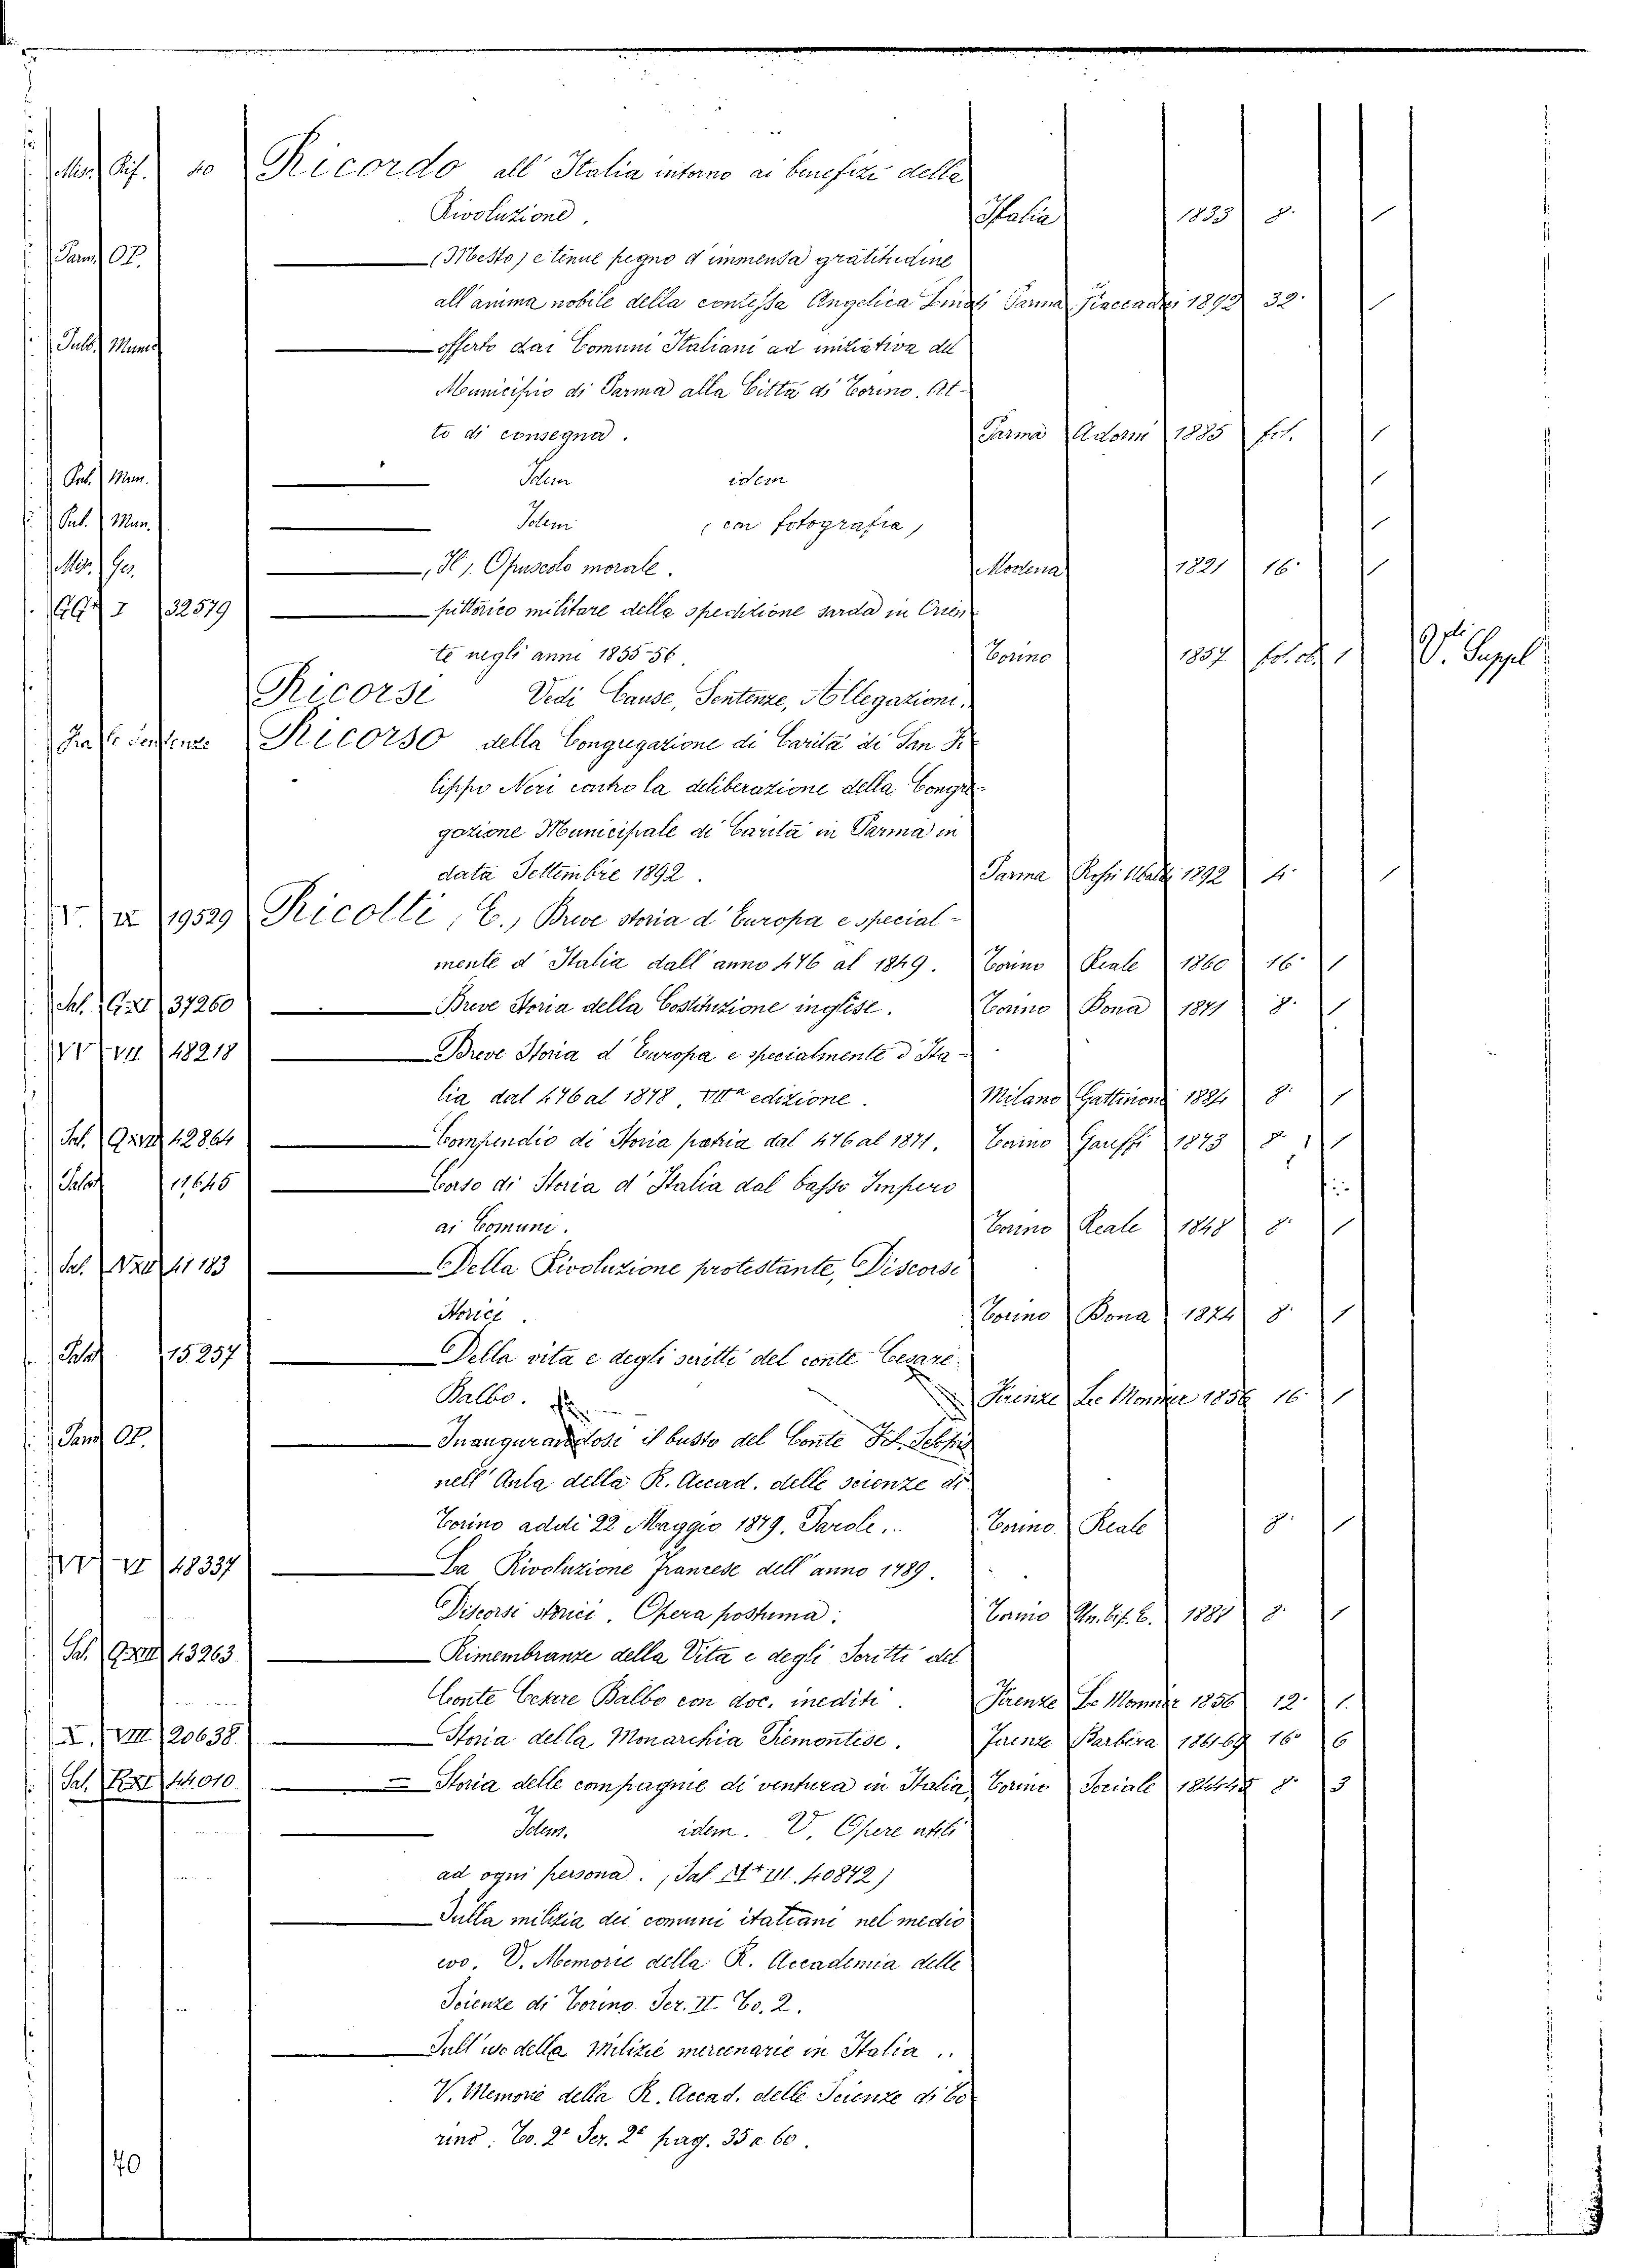 Mis. Rif. 40 Ricordo all' Italia intorno ai benefizi della
Rivoluzione. Italia 1833 8. 1
Parm. OP. (Mesto) e tenue pegno d'immensa gratitudine
all'anima nobile della contessa Angelica Parma 1892 32. 1
Pubb. Munic. offerto dai Comuni Italiani ad iniziativa del
Municipio di Parma alla Città di Torino. At-
to di consegna. Parma Adorni 1885 fol. 1
Pub. Mun. Idem idem 1
Pub. Mun. Idem (con fotografia) 1
Mis. Ges. (Il). Opuscolo morale. Modena 1821 16. 1
I 32579 pittorico militare della spedizione sarda in Orien-
te negli anni 1855-56. Torino 1857 fol. ob. 1 V. Suppl.
Ricorsi Vedi Cause, Sentenze, Allegazioni.
Sentenze Ricorso della Congregazione di Carità di San Fi-
lippo Neri contro la deliberazione della Congre-
gazione Municipale di Carità in Parma in
data Settembre 1892. Parma Rossi Ubaldi 1892 4. 1
V. IX 19529 Ricotti, E., Breve storia d'Europa e special-
mente d'Italia dall'anno 476 al 1849. Torino Reale 1860 16. 1
Sal. 37260 Breve Storia della Costituzione inglese. Torino Bona 1871 8. 1
VII 48218 Breve Storia d'Europa e specialmente d'Ita-
lia dal 476 al 1878, VIIa edizione. Milano Gattinoni 1884 8. 1
Sal. 42864 Compendio di Storia patria dal 476 al 1871. Torino 1873 8. 1
Salar 11645 Corso di Storia d'Italia dal basso Impero
ai Comuni. Torino Reale 1848 8. 1
Sal. 41183 Della Rivoluzione protestante, Discorsi
Storici. Torino Bona 1874 8. 1
Salar 15257 Della vita e degli scritti del conte Cesare
Balbo. Firenze Le Monnier 1856 16. 1
Parm. OP. Inaugurandosi il busto del Conte
nell'Aula della R. Accad. delle scienze di
Torino addì 22 Maggio 1879. Parole. Torino. Reale 8. 1
VI 48337 La Rivoluzione francese dell'anno 1789.
Discorsi storici. Opera postuma. Torino 1888 8. 1
Sal. 43263 Rimembranze della Vita e degli Scritti del
Conte Cesare Balbo con doc. inediti. Firenze Le Monnier 1856 12. 1.
X. VIII 20638. Storia della Monarchia Piemontese. Firenze Barbèra 1861-69 16o 6
Sal. 44010 = Storia delle compagnie di ventura in Italia, Torino Sociale 1844-45 8. 3
Idem. idem. V. Opere utili
ad ogni persona. (Sal. 40872)
Sulla milizia dei comuni italiani nel medio
evo. V. Memorie della R. Accademia delle
Scienze di Torino Ser. II To. 2.
Sull'uso della Milizie mercenarie in Italia..
V. Memorie della R. Accad. delle Scienze di To-
rino. To. 2o Ser. 2a pag. 35 a 60.
70